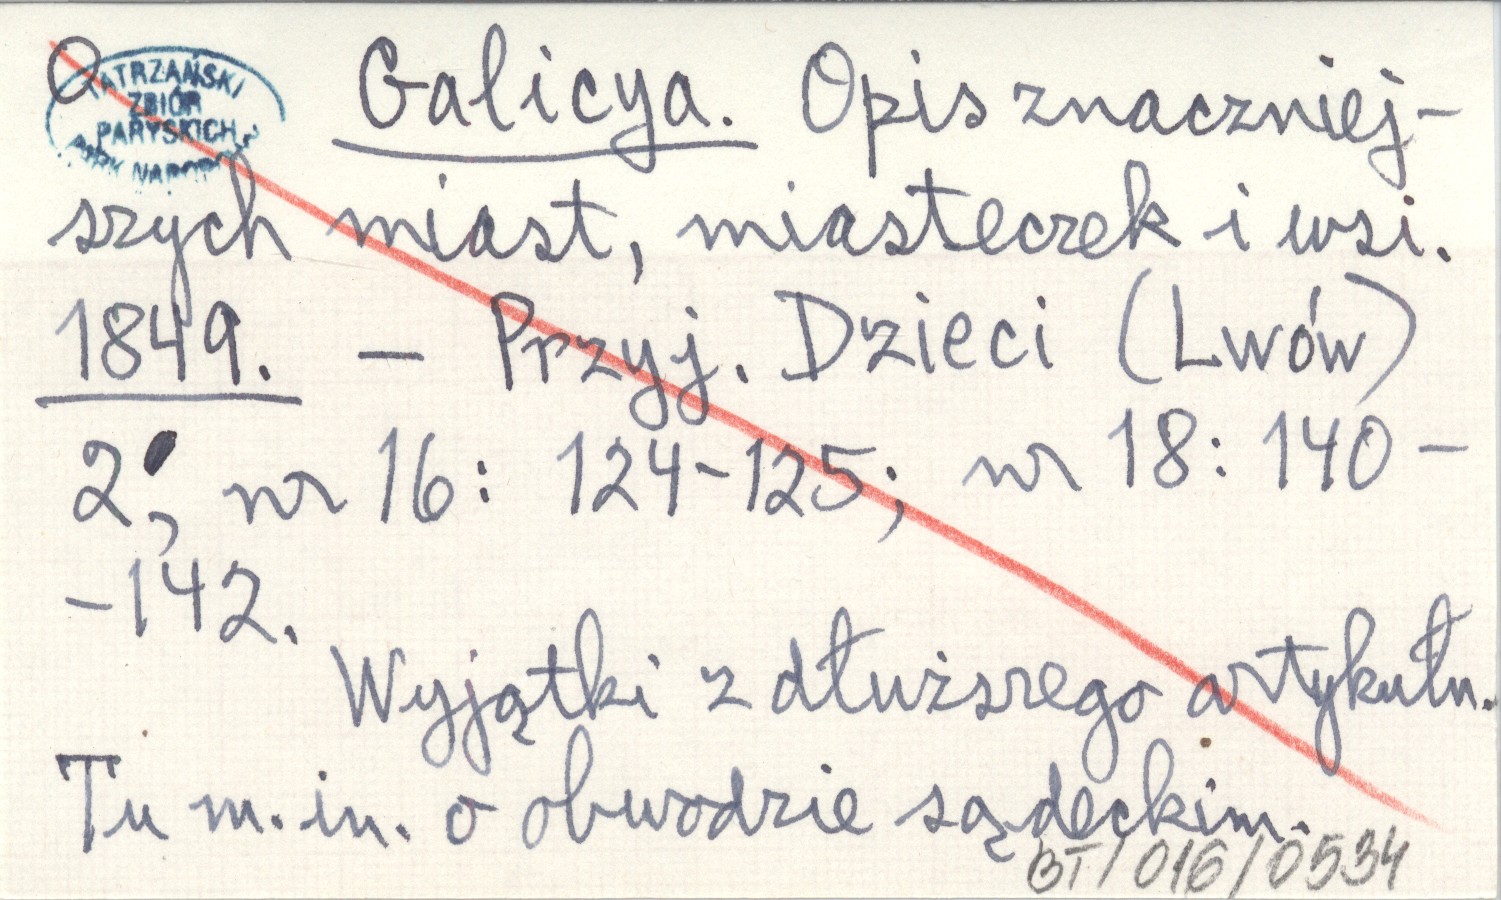 O
TATRZAŃSKI
ZBIÓR
PARYSKICH
PARK NARODOWY
Galicya. Opis znaczniej-
szych miast, miasteczek i wsi.
1849. – Przyj. Dzieci (Lwów)
2, nr 16: 124-125; nr 18: 140-
-142.
Wyjątki z dłuższego artykułu.
Tu m.in. o obwodzie sądeckim.
BT/016/0534